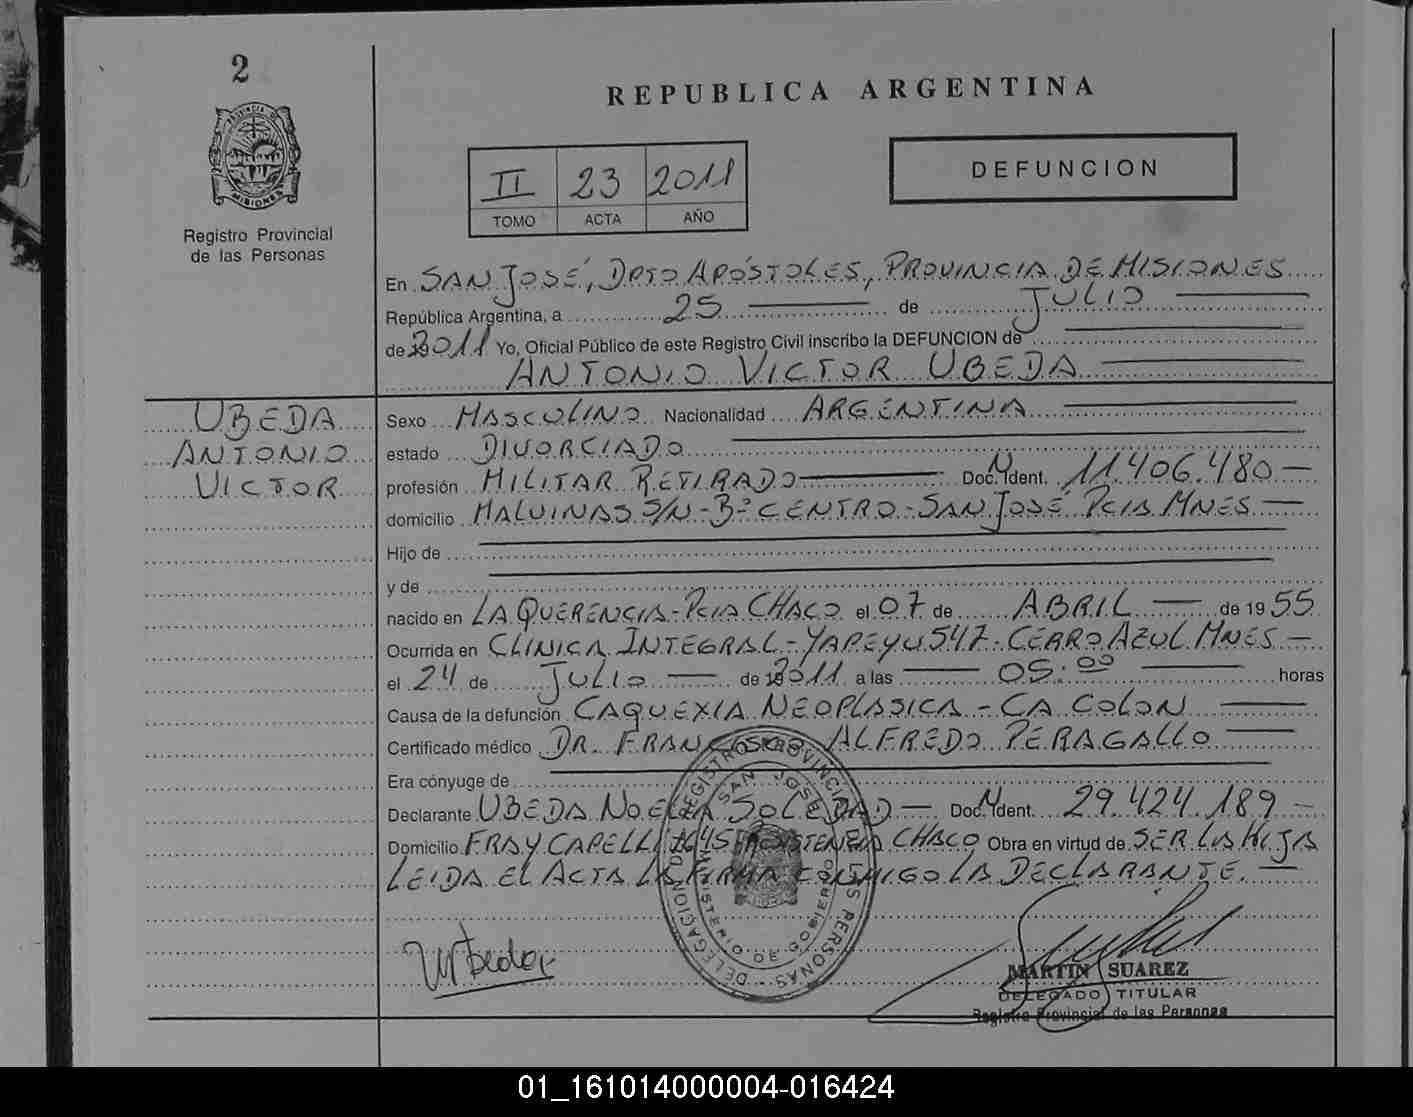 2
PROVINCIA DE
MISIONES
Registro Provincial
de las Personas
REPUBLICA ARGENTINA
II 23 2011
TOMO ACTA AÑO
DEFUNCION
En SAN JOSÉ, DPTO APÓSTOLES, PROVINCIA DE MISIONES
República Argentina, a 25 de JULIO
de 2011 Yo, Oficial Público de este Registro Civil inscribo la DEFUNCION de
ANTONIO VICTOR UBEDA
UBEDA
ANTONIO
VICTOR
Sexo MASCULINO Nacionalidad ARGENTINA
estado DIVORCIADO
profesión MILITAR RETIRADO Doc. N Ident. 11.406.480
domicilio MALVINAS S/N - Bº CENTRO - SAN JOSÉ PCIA MNES
Hijo de
y de
nacido en LA QUERENCIA - PCIA CHACO el 07 de ABRIL de 1955
Ocurrida en CLINICA INTEGRAL - YAPEYU 547 - CERRO AZUL MNES
el 24 de JULIO de 2011 a las 05:00 horas
Causa de la defunción CAQUEXIA NEOPLASICA - CA COLON
Certificado médico DR. ALFREDO PERAGALLO
Era cónyuge de
Declarante UBEDA NOELIA SOLEDAD Doc. N Ident. 29.424.189
Domicilio FRAY CAPELLI RESISTENCIA CHACO Obra en virtud de SER LA HIJA
LEIDA EL ACTA LA FIRMA CONMIGO LA DECLARANTE.
DELEGACION DEL REGISTRO PROVINCIAL DE LAS PERSONAS
SAN JOSE
MINISTERIO DE GOBIERNO
MARTIN SUAREZ
DELEGADO TITULAR
Registro Provincial de las Personas
01_161014000004-016424